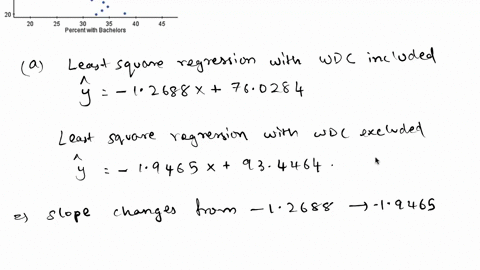 20
20 25 30 35 40 45
Percent with Bachelors
(a) Least square regression with WDC included
ŷ = -1.2688x + 76.0284
Least square regression with WDC excluded
ŷ = -1.9465x + 93.4464.
=) slope changes from -1.2688 → -1.9465